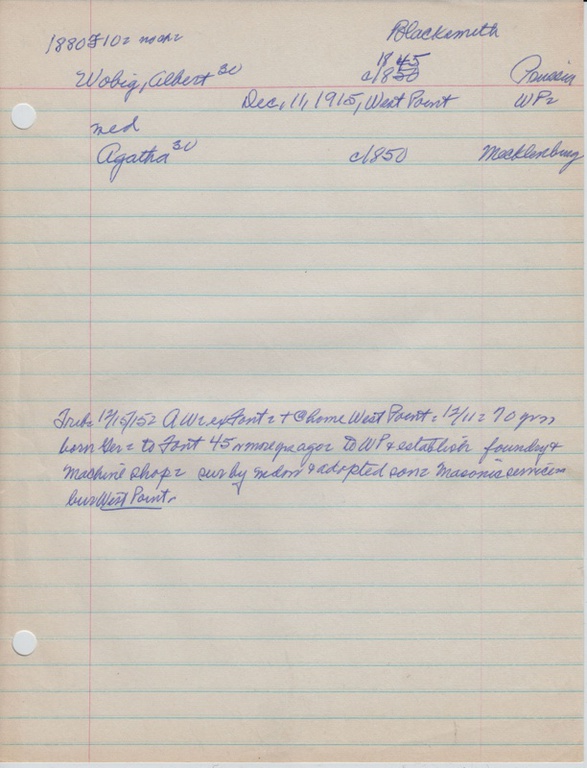 1880F10= no ch= Blacksmith
1845
Wobig, Albert 30 c1850 Prussia
Dec, 11, 1915, West Point WP=
med
Agatha 30 c1850 Mecklenburg
Trib= 12/15/15= AW= exFont= + @ home West Point= 12/11= 70 yrs
born Ger= to Font 45 or more yrs ago= to WP & establish foundry &
Machine shop= sur by wdow & adopted son= Masonic services
bur West Point.